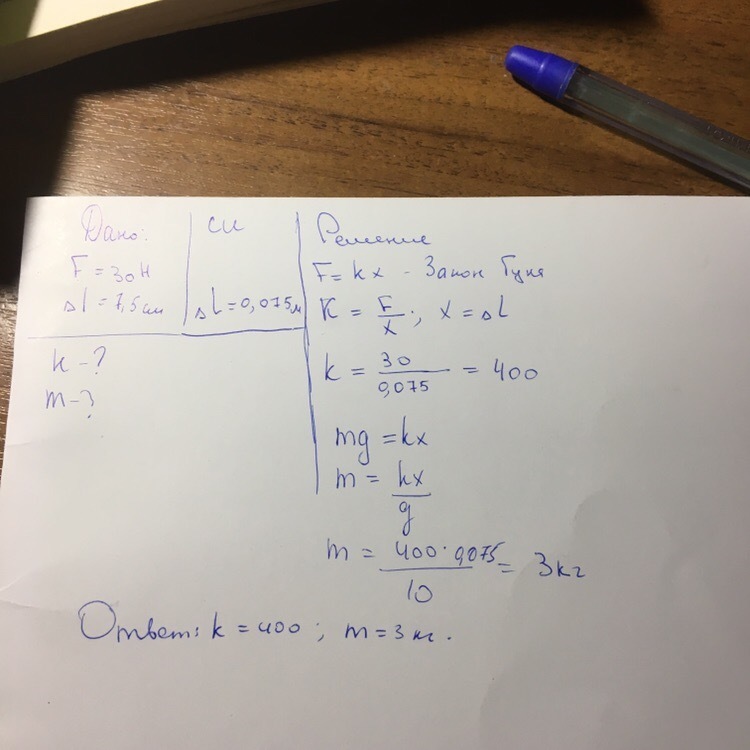 Дано:
F = 30 Н
Δl = 7,5 см
k - ?
m - ?
СИ
ΔL = 0,075 м
Решение
F = kx - Закон Гука
K = F/x ; x = ΔL
k = 30/0,075 = 400
mg = kx
m = kx/g
m = 400·0,075/10 = 3 кг
Ответ: k = 400 ; m = 3 кг.